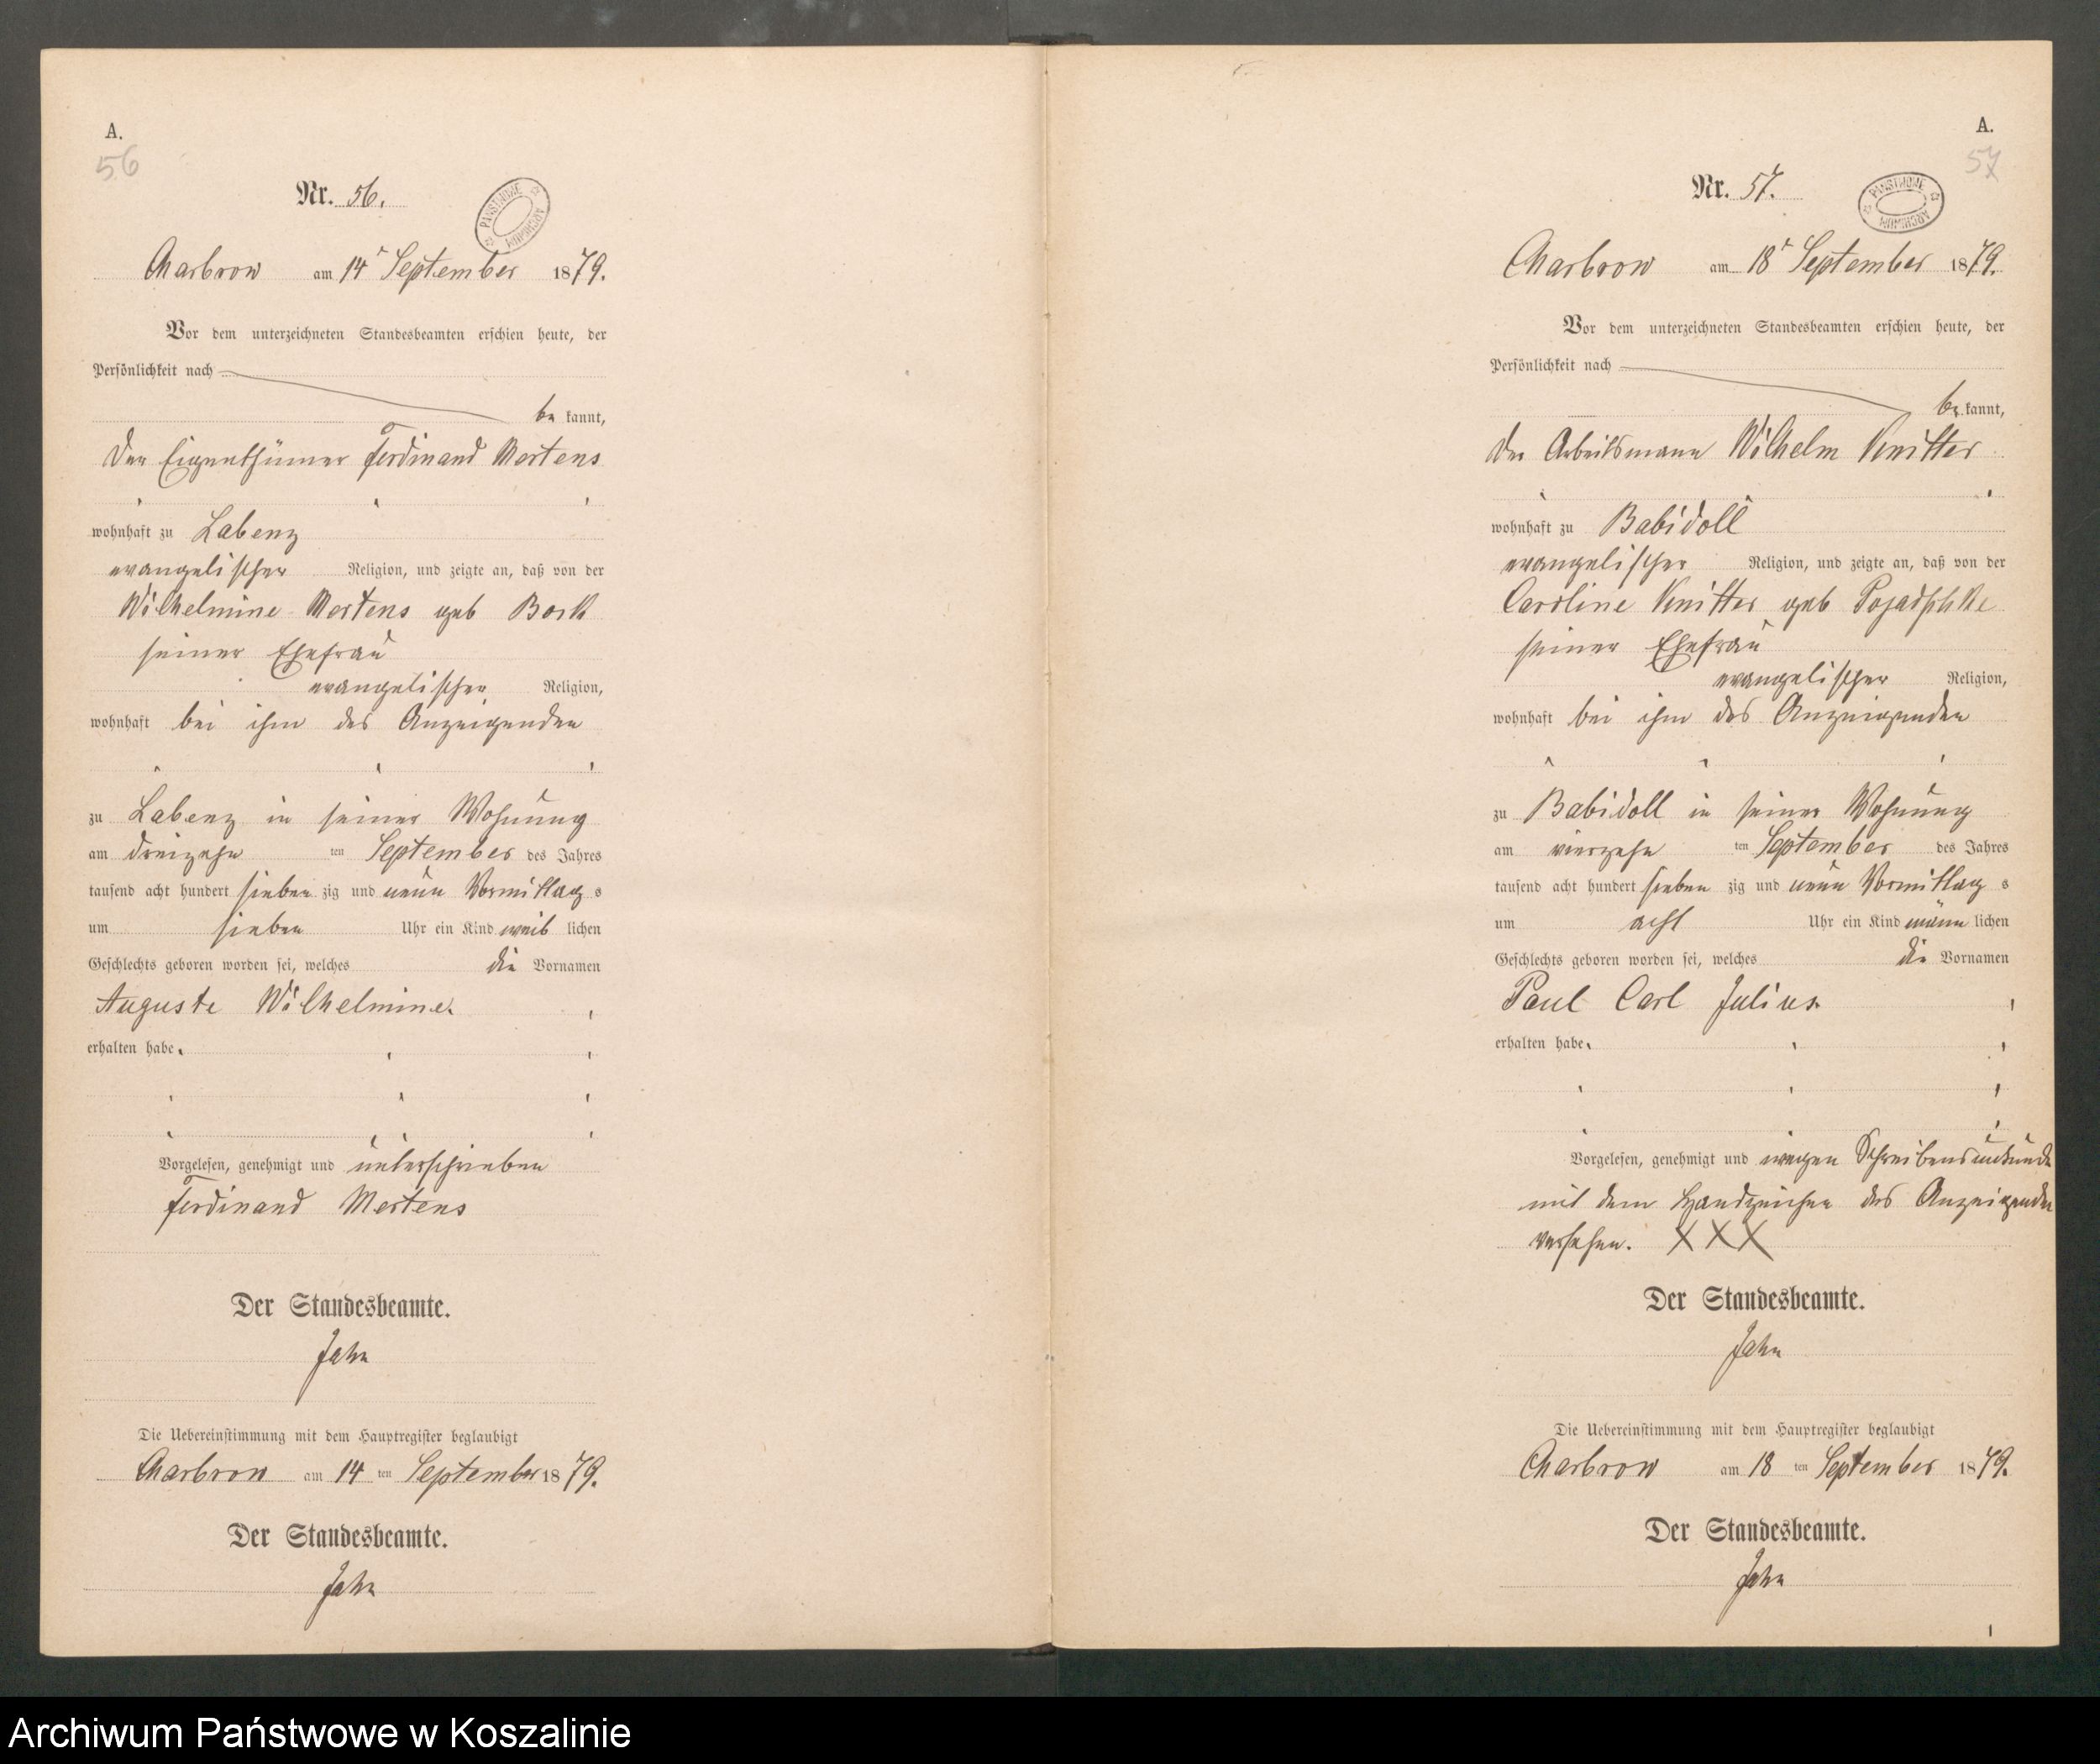 A.
56
Nr. 56.
PAŃSTWOWE ARCHIWUM
Charbrow am 14t September 1879.
Vor dem unterzeichneten Standesbeamten erschien heute, der
Persönlichkeit nach
be kannt,
der Eigenthümer Ferdinand Mertens
wohnhaft zu Labenz
evangelischer Religion, und zeigte an, daß von der
Wilhelmine Mertens geb Bork
seiner Ehefrau
evangelischer Religion,
wohnhaft bei ihm des Anzeigenden
zu Labenz in seiner Wohnung
am dreizehn ten September des Jahres
tausend acht hundert sieben zig und neun Vormittag s
um sieben Uhr ein Kind weib lichen
Geschlechts geboren worden sei, welches die Vornamen
Auguste Wilhelmine.
erhalten habe.
Vorgelesen, genehmigt und unterschrieben
Ferdinand Mertens
Der Standesbeamte.
Jahn
Die Uebereinstimmung mit dem Hauptregister beglaubigt
Charbrow am 14 ten September 1879.
Der Standesbeamte.
Jahn
A.
57
Nr. 57.
PAŃSTWOWE ARCHIWUM
Charbrow am 18t September 1879.
Vor dem unterzeichneten Standesbeamten erschien heute, der
Persönlichkeit nach
be kannt,
der Arbeitsmann Wilhelm Knitter
wohnhaft zu Babidoll
evangelischer Religion, und zeigte an, daß von der
Caroline Knitter geb
seiner Ehefrau
evangelischer Religion,
wohnhaft bei ihm des Anzeigenden
zu Babidoll in seiner Wohnung
am vierzehn ten September des Jahres
tausend acht hundert sieben zig und neun Vormittag s
um acht Uhr ein Kind männ lichen
Geschlechts geboren worden sei, welches die Vornamen
Paul Carl Julius.
erhalten habe.
Vorgelesen, genehmigt und wegen Schreibensunkunde
mit dem Handzeichen des Anzeigenden
versehen. XXX
Der Standesbeamte.
Jahn
Die Uebereinstimmung mit dem Hauptregister beglaubigt
Charbrow am 18 ten September 1879.
Der Standesbeamte.
Jahn
Archiwum Państwowe w Koszalinie